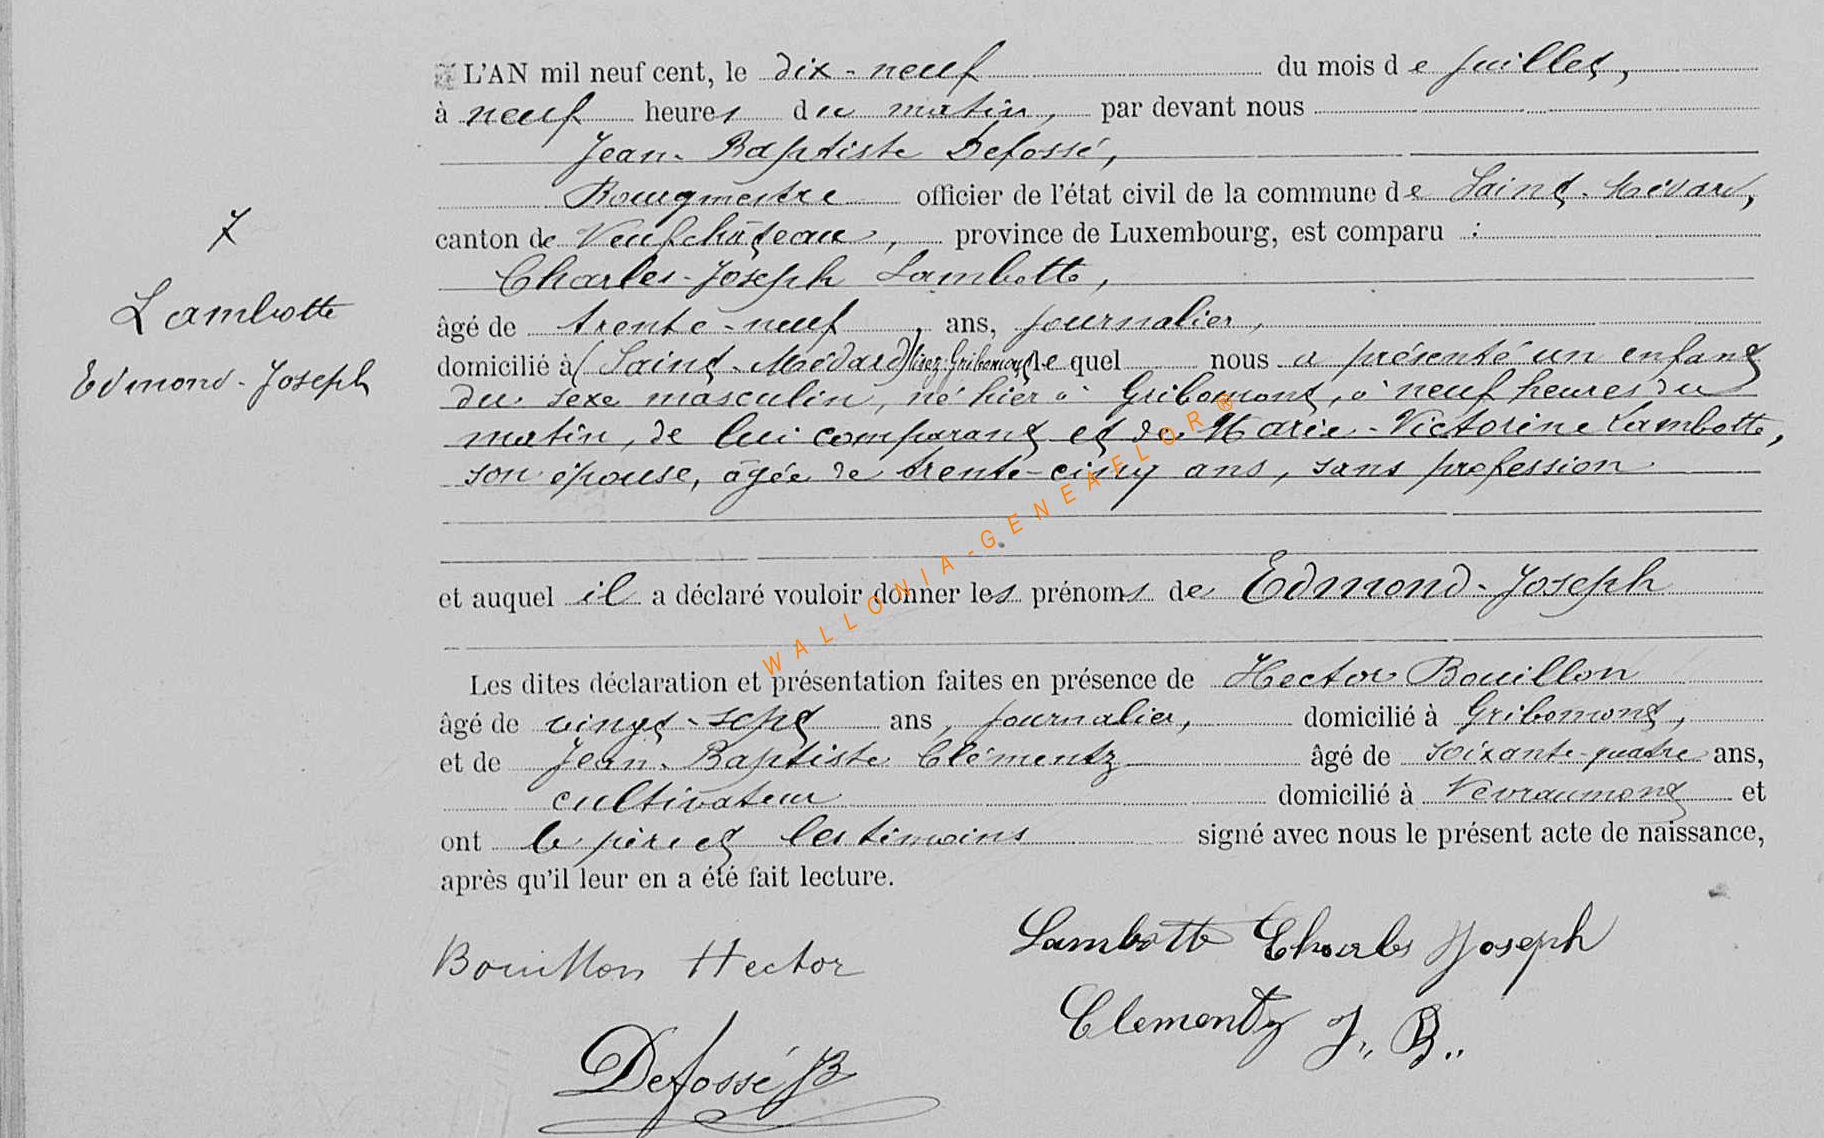 L'AN mil neuf cent, le dix-neuf du mois de juillet,
à neuf heures du matin, par devant nous
Jean-Baptiste Defossé,
Bourgmestre officier de l'état civil de la commune de Saint-Médard,
canton de Neufchâteau, province de Luxembourg, est comparu :
Charles-Joseph Lambotte,
7
âgé de trente-neuf, ans, journalier,
Lambotte
Edmond-Joseph
domicilié à (Saint-Médard) lisez: Gribomont, lequel nous a présenté un enfant
du sexe masculin, né hier à Gribomont, à neuf heures du
matin, de lui comparant et de Marie-Victorine Lambotte,
son épouse, âgée de trente-cinq ans, sans profession
et auquel il a déclaré vouloir donner les prénoms de Edmond-Joseph
Les dites déclaration et présentation faites en présence de Hector Bouillon
âgé de vingt-sept ans, journalier, domicilié à Gribomont,
et de Jean-Baptiste Clémentz âgé de soixante-quatre ans,
cultivateur domicilié à Névraumont et
ont le père et les témoins signé avec nous le présent acte de naissance,
après qu'il leur en a été fait lecture.
Bouillon Hector
Lambotte Charles Joseph
Clementz J,, B,,
Defossé JB
WALLONIA-GENEAELOR®